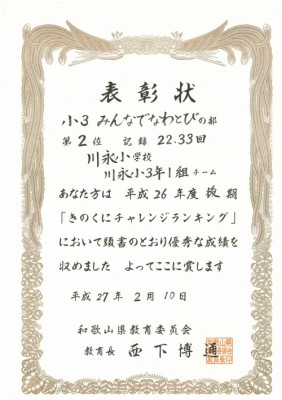 表彰状
小3 みんなでなわとびの部
第2位 記録 22.33回
川永小学校
川永小3年1組チーム
あなた方は 平成26年度後期
「きのくにチャレンジランキング」
において頭書のとおり優秀な成績を
収めました よってここに賞します
平成27年2月10日
和歌山県教育委員会
教育長 西下博通